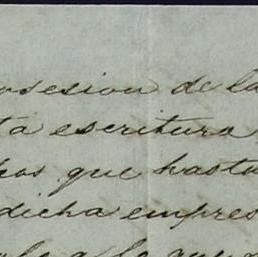 osesion de la
ta escritura
hos que hasta
dicha empres